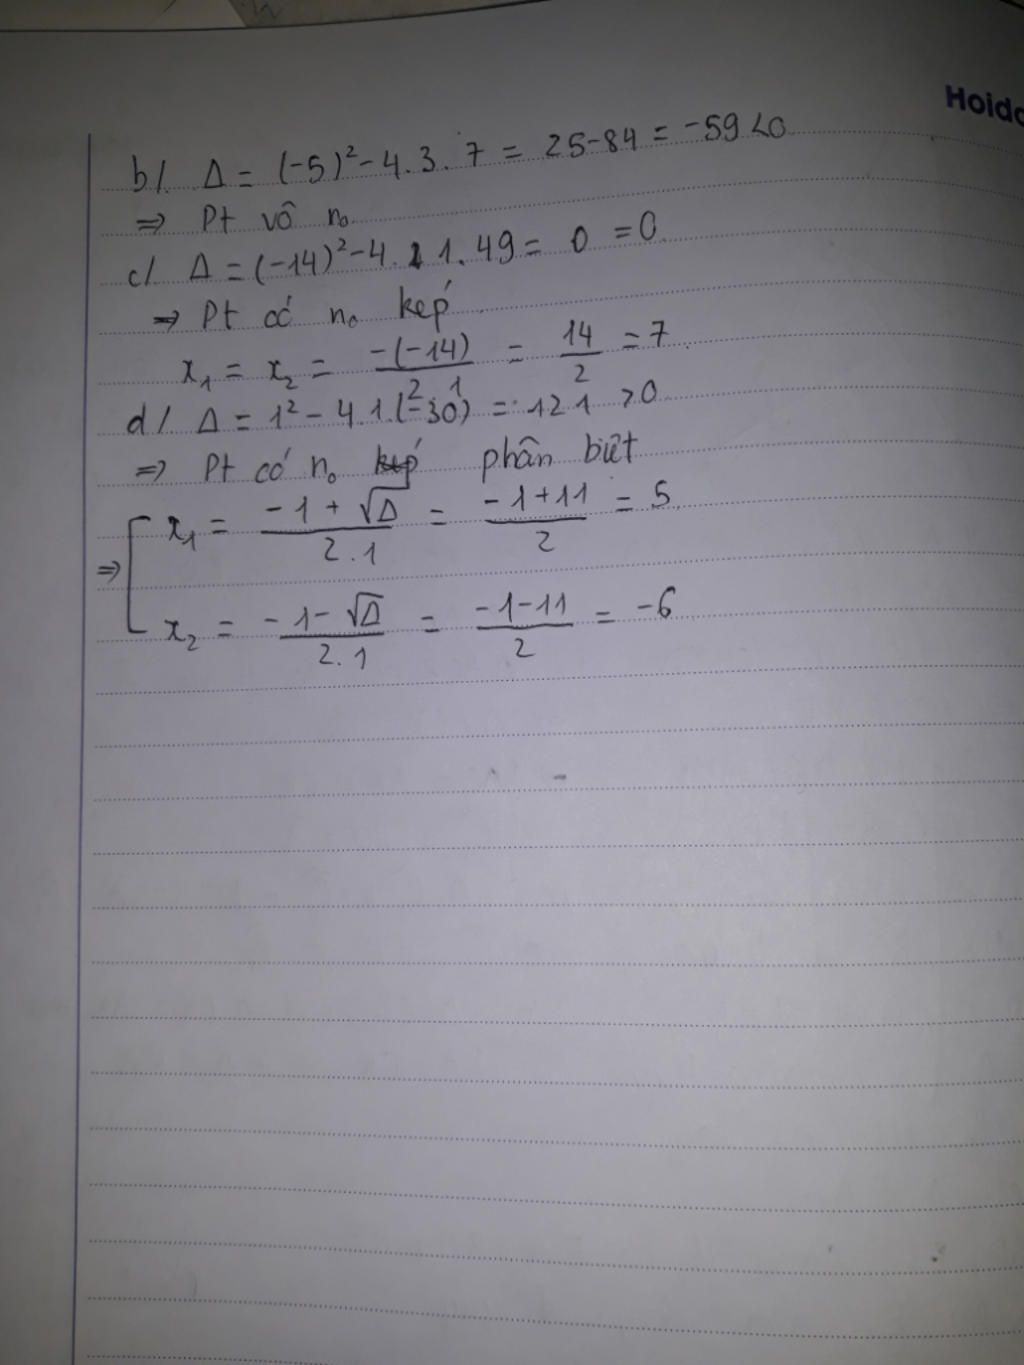 Hoido
b/. Δ = (-5)² - 4.3.7 = 25-84 = -59 <0
⇒ Pt vô n₀
c/ Δ = (-14)² - 4.1.49 = 0 = 0
⇒ Pt có n₀ kép
x₁ = x₂ = -(-14)/2.1 = 14/2 = 7
d/. Δ = 1² - 4.1.(-30) = 121 >0
⇒ Pt có n₀ phân biệt
⇒ [ x₁ = (-1 + √Δ)/2.1 = (-1+11)/2 = 5
x₂ = (-1 - √Δ)/2.1 = (-1-11)/2 = -6